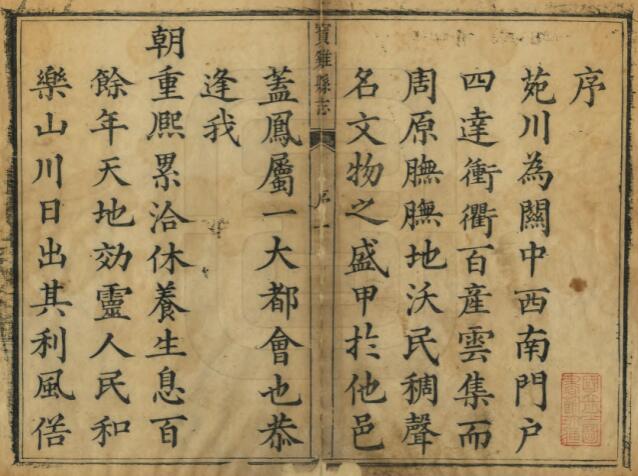 序
苑川為關中西南門户
四達衝衢百産雲集而
周原膴膴地沃民稠聲
名文物之盛甲扵他邑
寶雞縣志
序
一
蓋鳳屬一大都會也恭
逢我
朝重熈累洽休養生息百
餘年天地効靈人民和
樂山川日出其利風俗